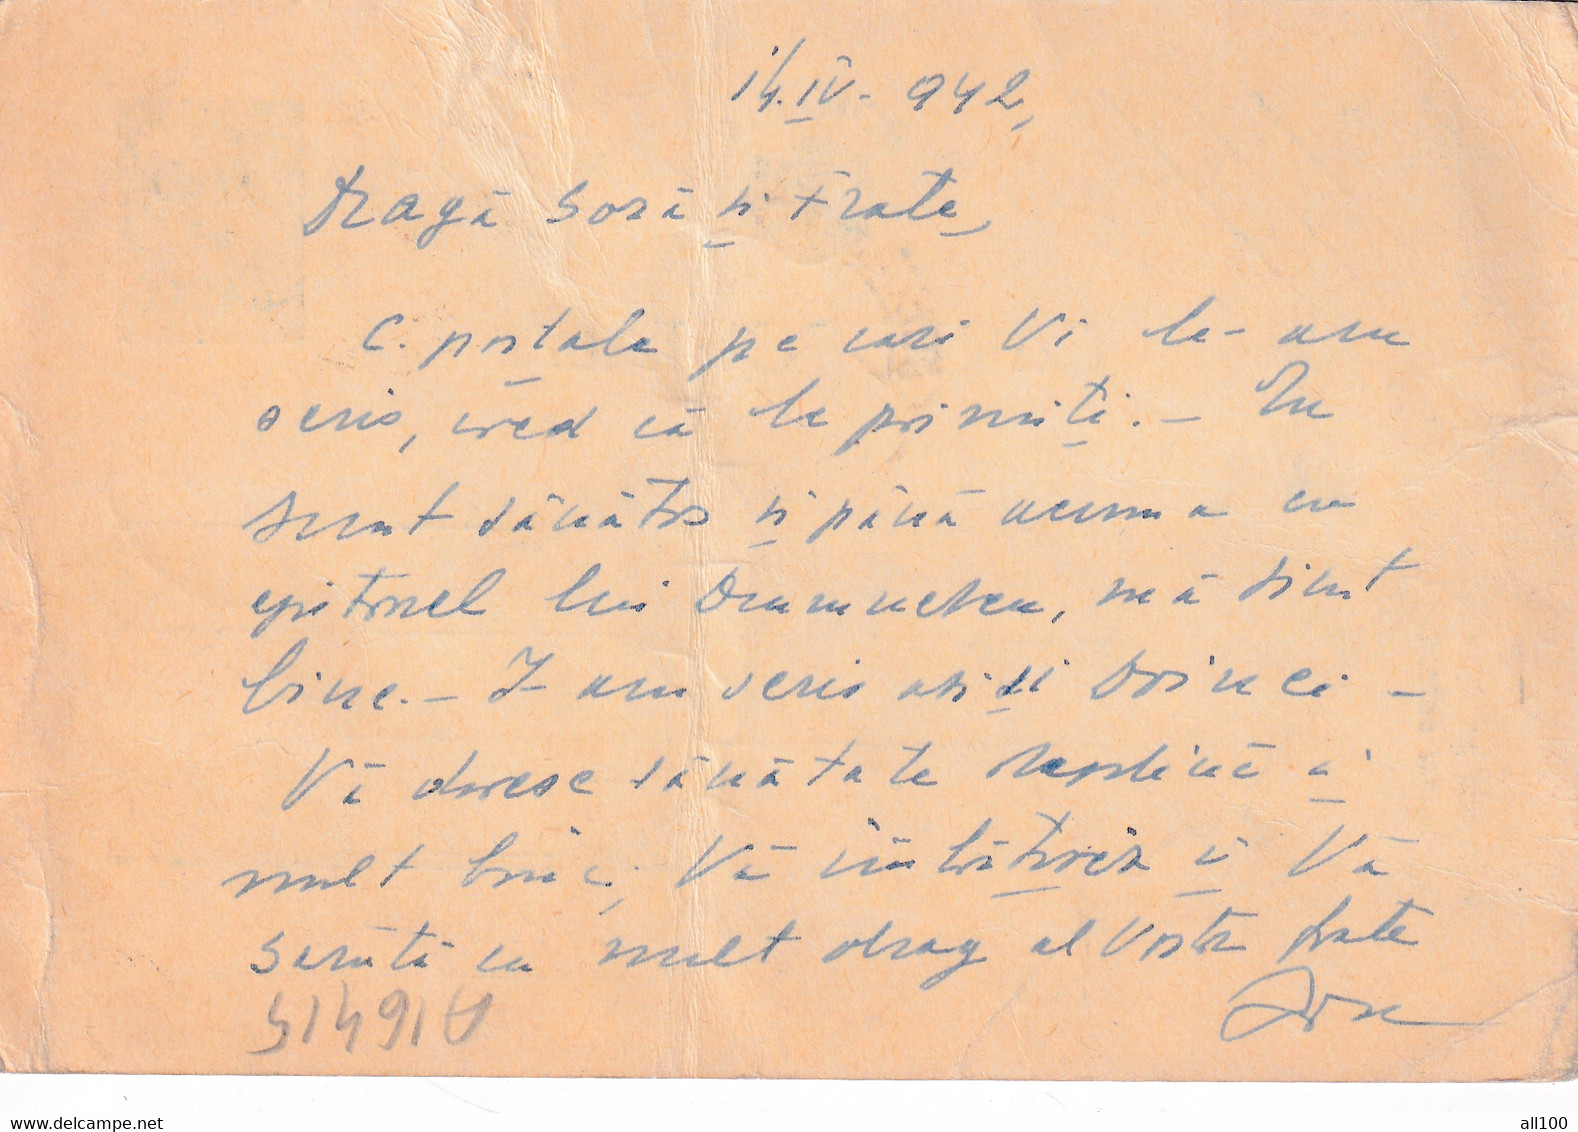 14.IV-942,
Dragă soră și frate,
C. poștale pe cari Vi le-am
scris, cred că le primiți.- Eu
sunt sănătos și până acuma cu
ajutorul lui Dumnezeu, mă simt
bine.- I-am scris azi și Doinei -
Vă doresc sănătate deplină și
mult bine, Vă îmbrățișez și Vă
sărută cu mult drag al Vostr frate
Ion
A16415
www.delcampe.net
all100